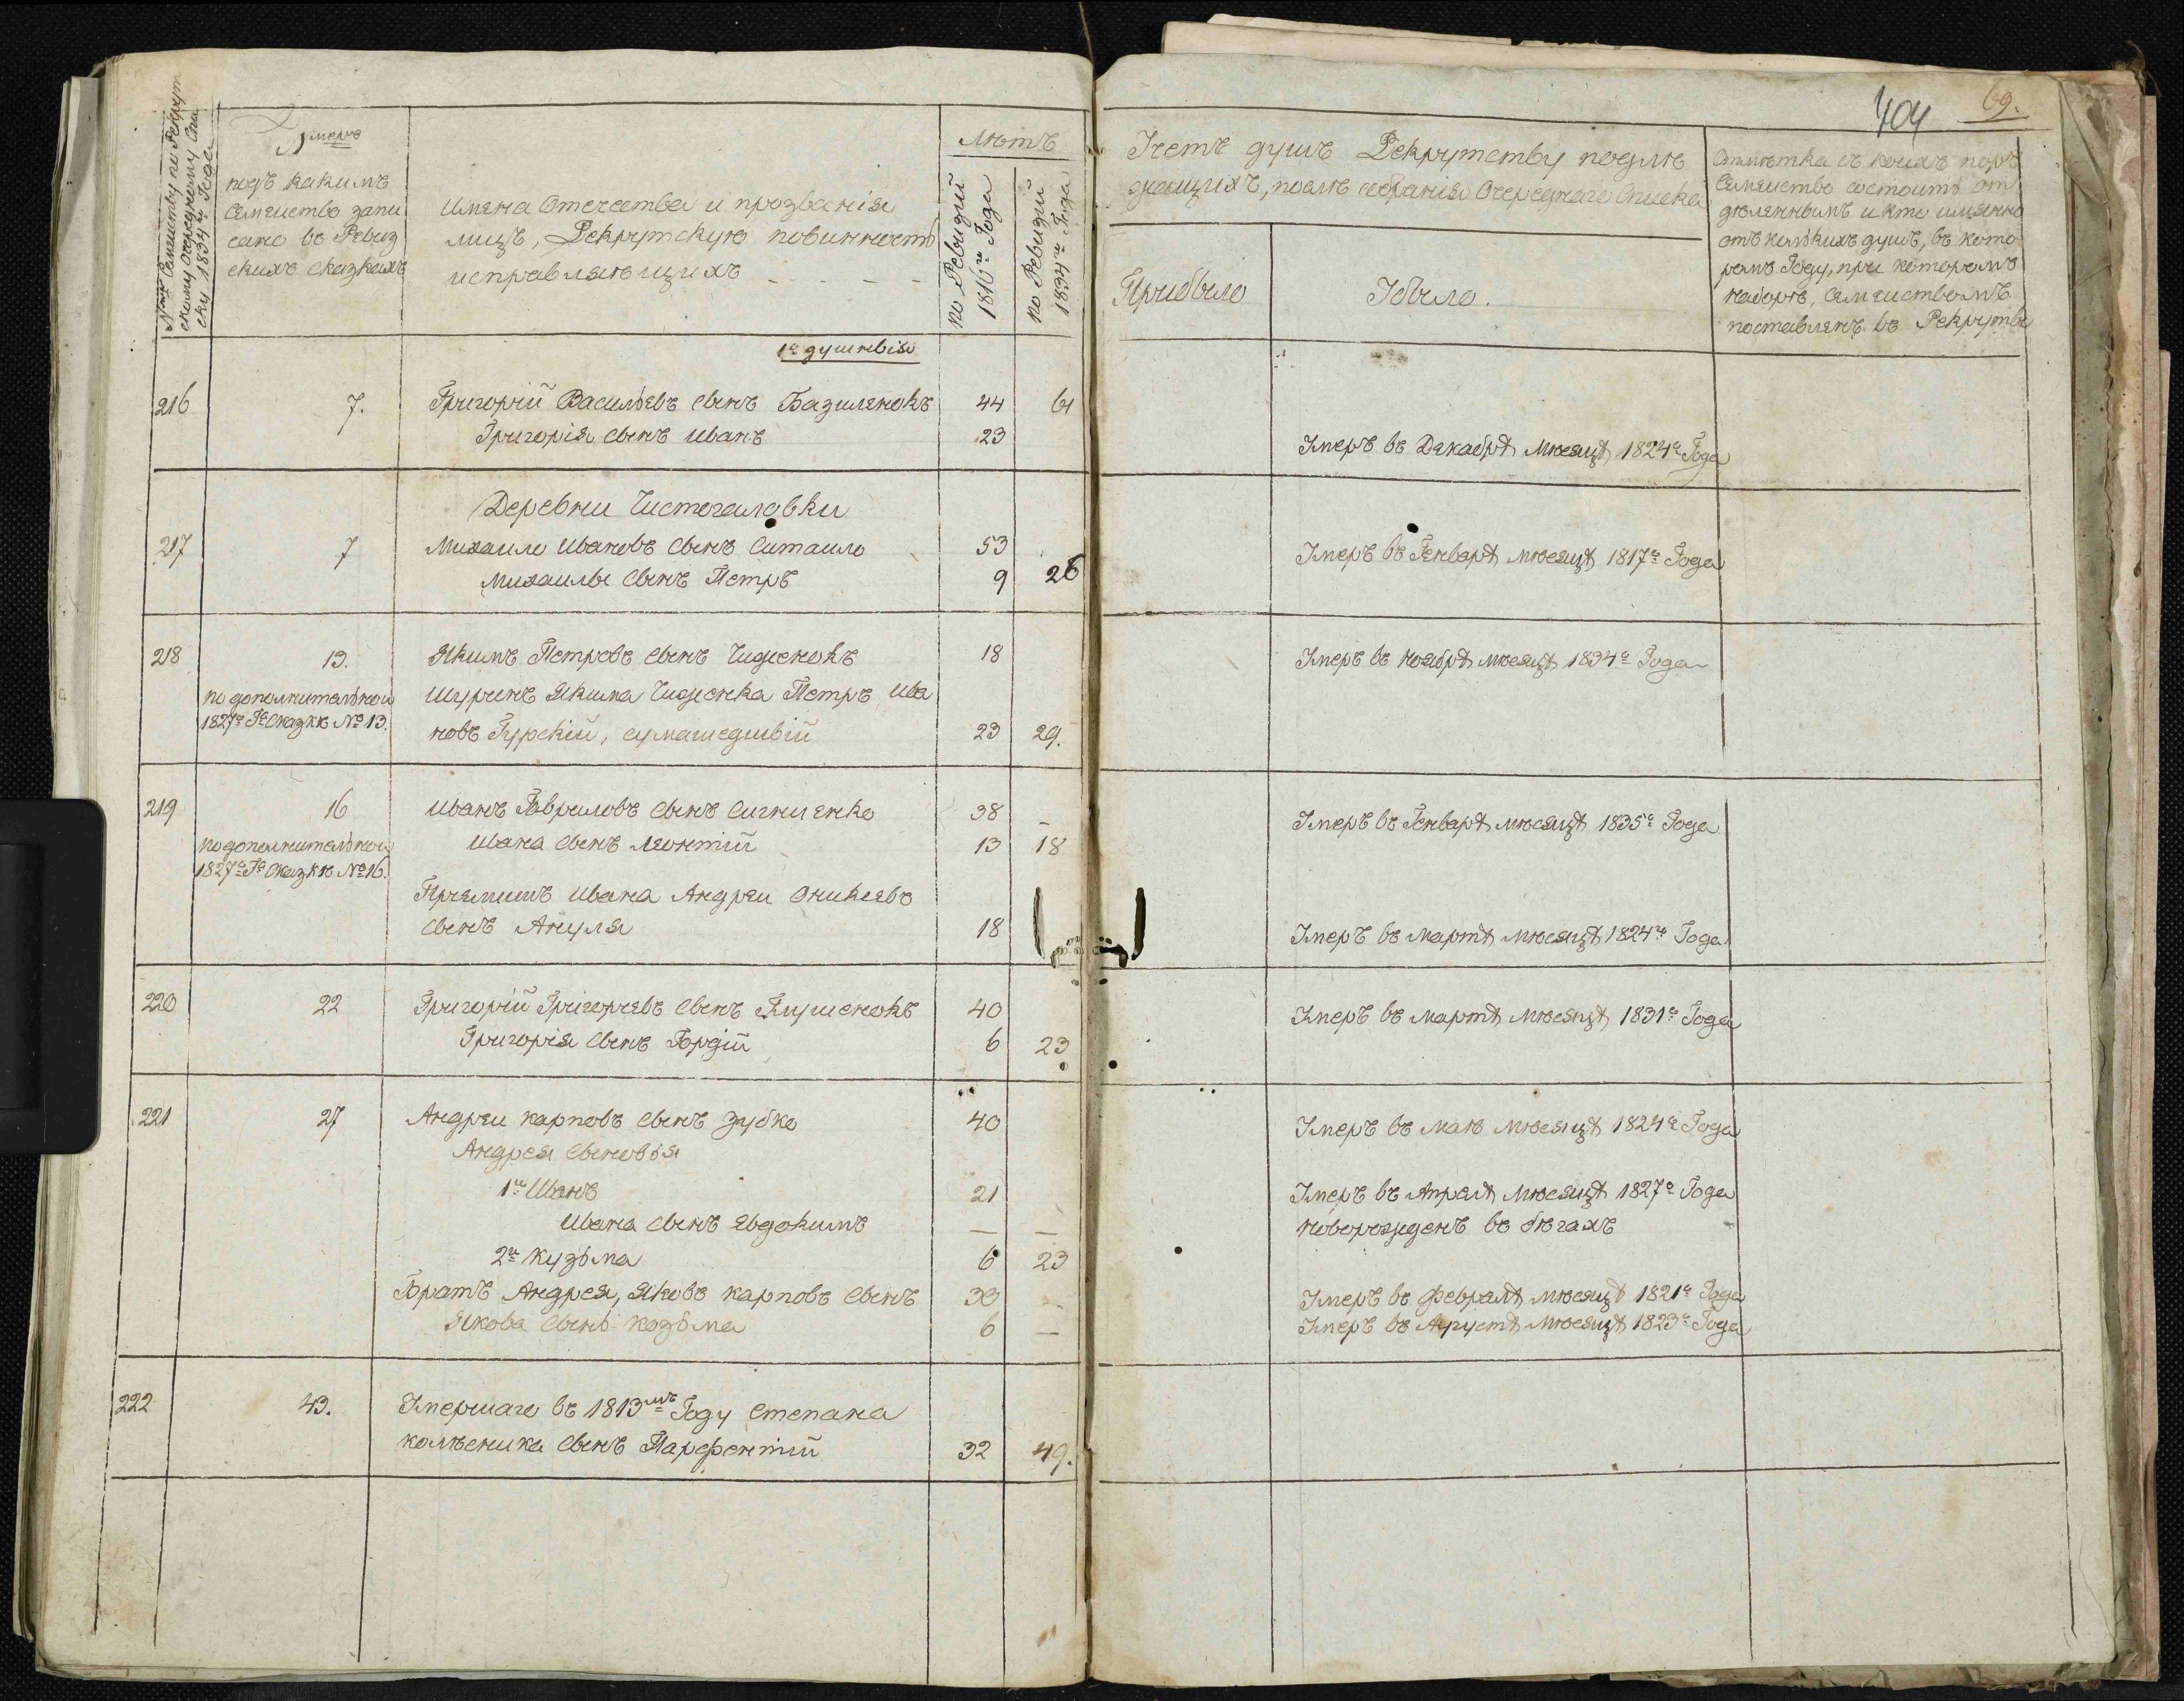 404
69.
№мръ Семейству по Рекрут
скому Очередному Спи
ску 1834го Года
Нумеръ
подъ какимъ
Семейство запи
сано въ Ревиз
скихъ сказкахъ
Имена Отечества и прозванія
лицъ, Рекрутскую повинность
исправляющихъ
Лѣтъ
по Ревизіи
1816го Года
по Ревизіи
1834го Года
Учетъ душъ Рекрутству подле
жащихъ, после собранія Очереднаго Списка
Прибыло
Убыло.
Отмѣтка съ коихъ поръ
Семейство состоитъ от
дѣленнымъ и кто именно
отъ колькихъ душъ, въ кото
ромъ Году, при которомъ
наборѣ, Семействомъ
поставленъ въ Рекруты
1о душныія
216 7. Григорій Васильевъ сынъ Базиленокъ 44 61
Григорія сынъ Иванъ 23 Умеръ въ Декабрѣ мѣсяцѣ 1824го Года
Деревни Чистогаловки
217 7 Михайло Ивановъ сынъ Ситайло 53 Умеръ въ Генварѣ мѣсяцѣ 1817го Года
Михайлы сынъ Петръ 9 26
218 13. Якимъ Петровъ сынъ Чиженокъ 18 Умеръ въ Ноябрѣ мѣсяцѣ 1834го Года
по дополнительной Шуринъ Якима Чиженка Петръ Ива
1827го Го Сказкѣ № 13. новъ Гурскій, сумашедшый 23 29.
219 16 Иванъ Гавриловъ сынъ Сигниенко 38 – Умеръ въ Генварѣ мѣсяцѣ 1835го Года
по дополнительной Ивана сынъ Леонтій 13 18
1827го Го Сказкѣ № 16.
Пріемышъ Ивана Андрей Оникіевъ
сынъ Ануля 18 Умеръ въ Мартѣ мѣсяцѣ 1824го Года
220 22 Григорій Григорьевъ сынъ Глушенокъ 40 Умеръ въ Мартѣ мѣсяцѣ 1831го Года
Григорія сынъ Гордій 6 23
221 27 Андрей Карповъ сынъ Зубко 40 Умеръ въ Маѣ мѣсяцѣ 1824го Года
Андрея сыновья
1й Иванъ 21 Умеръ въ Апрелѣ мѣсяцѣ 1827го Года
Ивана сынъ Евдокимъ — — Новорожденъ въ бѣгахъ
2й Кузьма 6 23
Братъ Андрея, Яковъ Карповъ сынъ 30 Умеръ въ Февралѣ мѣсяцѣ 1821го Года
Якова сынъ Козьма 6 — Умеръ въ Августѣ мѣсяцѣ 1823го Года
222 43. Умершаго въ 1813мъ Году Степана
Колѣсника сынъ Парфентій 32 49.